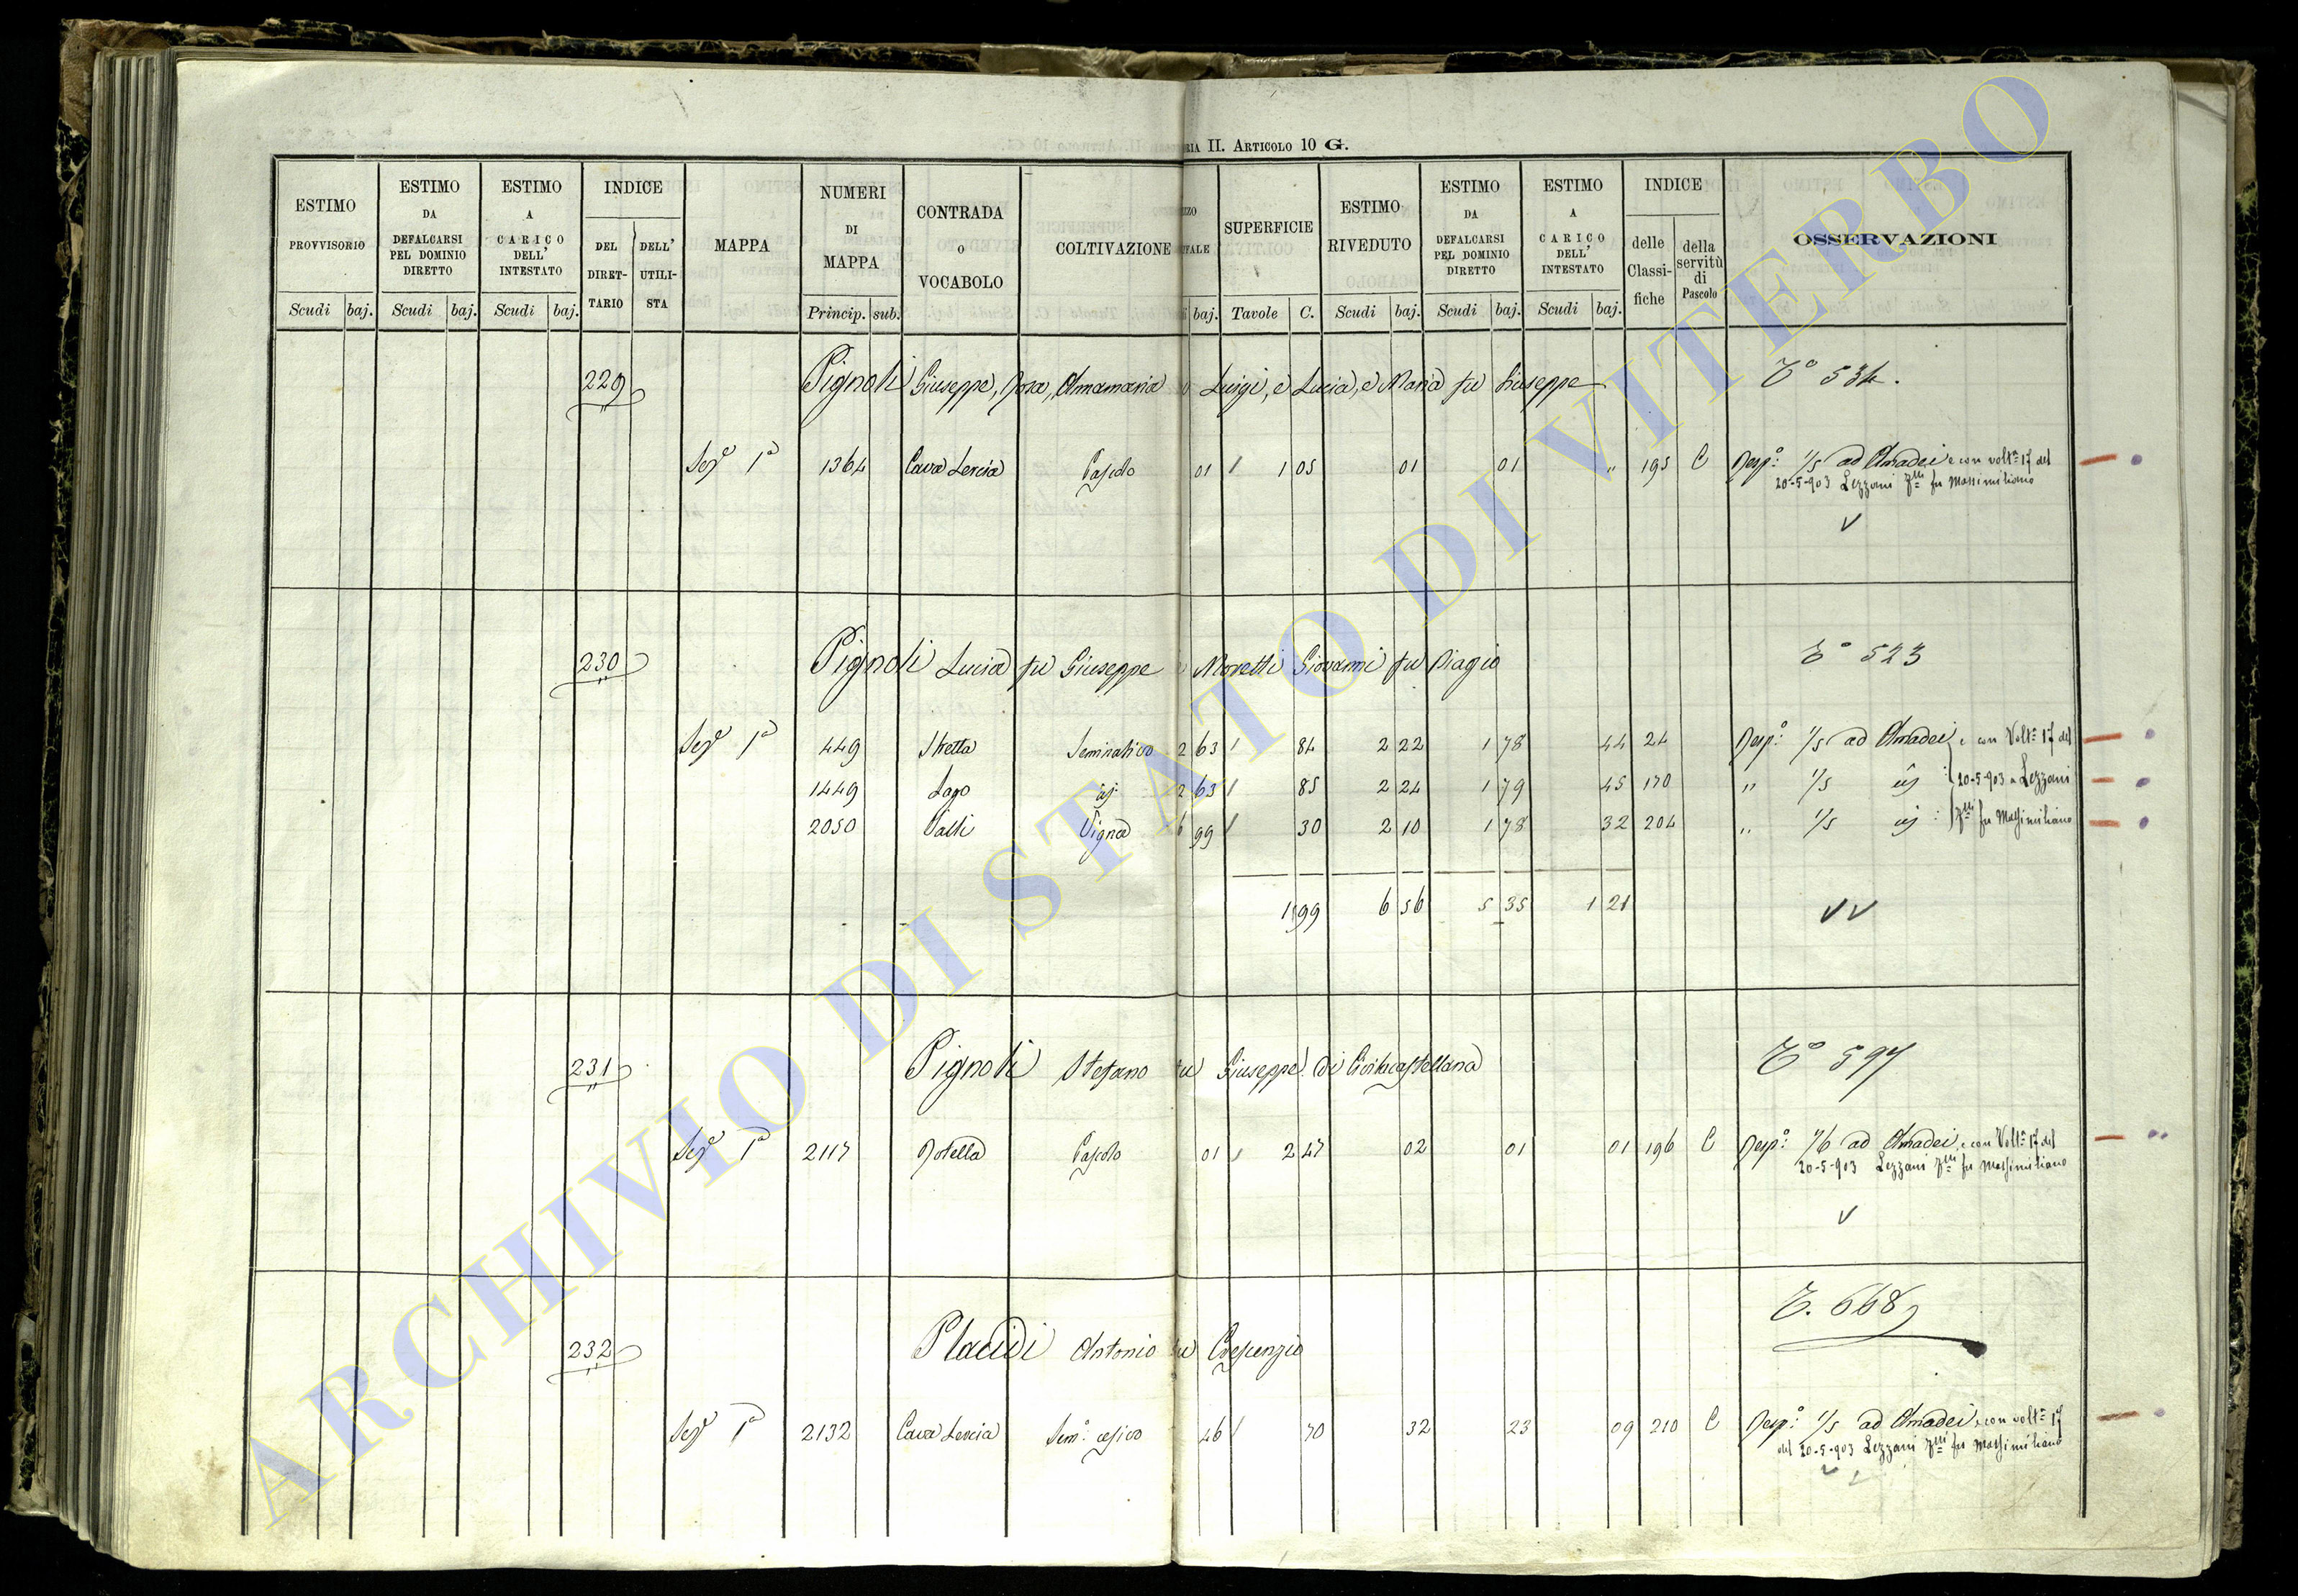 RIA II. ARTICOLO 10 G.
ESTIMO PROVVISORIO
Scudi baj.
ESTIMO DA DEFALCARSI PEL DOMINIO DIRETTO
Scudi baj.
ESTIMO A CARICO DELL' INTESTATO
Scudi baj.
INDICE
DEL DIRETTARIO
DELL' UTILISTA
MAPPA
NUMERI DI MAPPA
Princip. sub.
CONTRADA o VOCABOLO
COLTIVAZIONE
baj.
SUPERFICIE
Tavole C.
ESTIMO RIVEDUTO
Scudi baj.
ESTIMO DA DEFALCARSI PEL DOMINIO DIRETTO
Scudi baj.
ESTIMO A CARICO DELL' INTESTATO
Scudi baj.
INDICE
delle Classifiche
della servitù di Pascolo
OSSERVAZIONI
229 Pignoli Giuseppe, Rosa, Annamaria Luigi, e Lucia, e Maria fu Giuseppe
Seze 1a 1364 Cava Lercia Pascolo 01 1 05 01 01 " 195 C Resp: 1/5 ad Amadei e con volta 17 del
20-5-903 Lezzani fu Massimiliano
V
230 Pignoli Lucia fu Giuseppe Moretti Giovanni fu Biagio To 523
Seze 1a 449 Stretta Seminativo 2 63 84 2 22 1 78 44 24 Resp: 1/5 ad Amadei e con Volta 17 del
1449 Lago 2 63 85 2 24 1 79 45 170 " 1/5 20-5-903 a Lezzani
2050 Valli Vigna 6 99 30 2 10 1 78 32 204 " 1/5 fu Massimiliano
1 99 6 56 5 35 1 21
V V
231 Pignoli Stefano fu Giuseppe di Civitacastellana To 597
Sezе 1a 2117 Rotella Pascolo 01 2 47 02 01 01 196 C Resp: 1/6 ad Amadei e con Volta 17 del
20-5-903 Lezzani fu Massimiliano
V
T. 668
232 Placidi Antonio fu Crescenzio
Seze 1a 2132 Cava Lercia Sem: cesivo 46 70 32 23 09 210 C Resp: 1/5 ad Amadei e con volta 17
del 20-5-903 Lezzani fu Massimiliano
ARCHIVIO DI STATO DI VITERBO